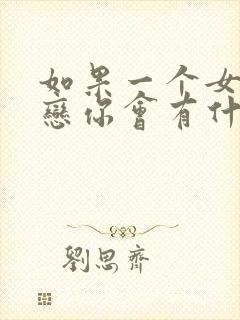 如果一个女
戀你會有什
劉思齊